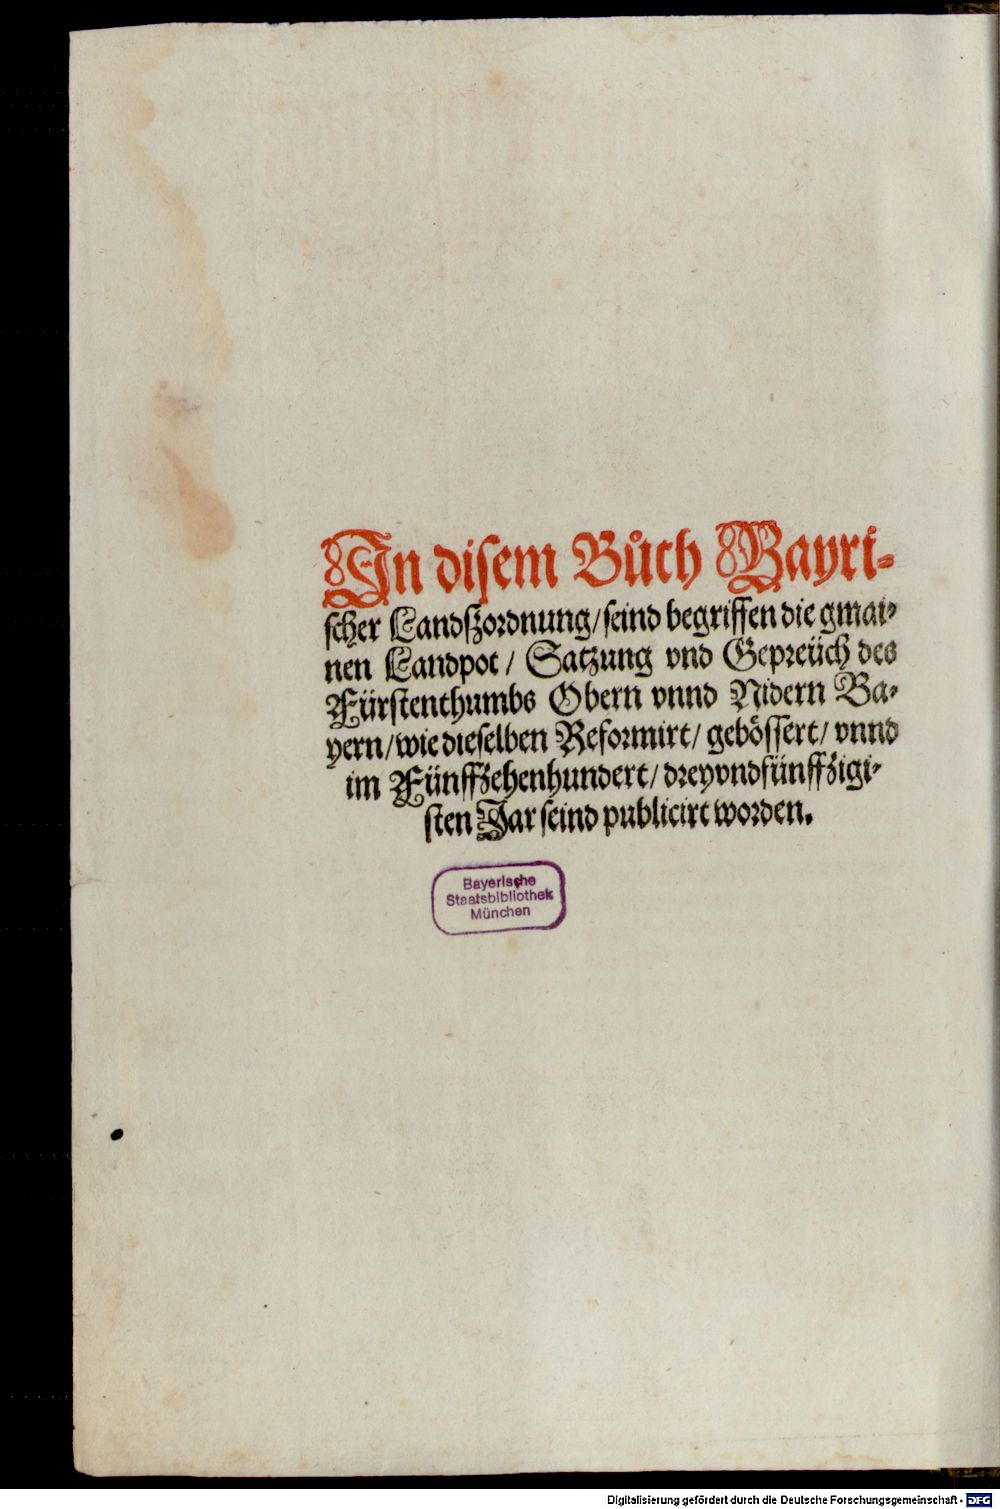 In disem Bůch Bayri-
scher Landßordnung/ seind begriffen die gmai-
nen Landpot/ Satzung vnd Gepreüch des
Fürstenthumbs Obern vnnd Nidern Ba-
yern/ wie dieselben Reformirt/ gebössert/ vnnd
im Fünffzehenhundert/ dreyvndfünffzigi-
sten Jar seind publicirt worden.
Bayerische
Staatsbibliothek
München
Digitalisierung gefördert durch die Deutsche Forschungsgemeinschaft - DFG